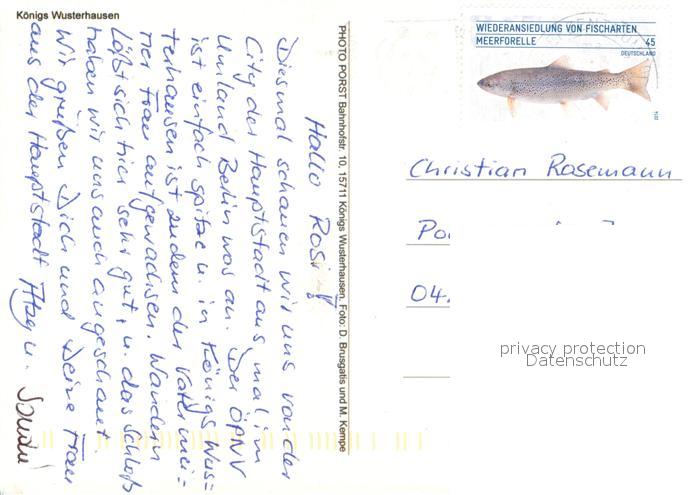 Königs Wusterhausen
PHOTO PORST Bahnhofstr. 10, 15711 Königs Wusterhausen. Foto: D. Brusgatis und M. Kempe
Hallo Rosi
Diesmal schauen wir uns von der
City der Hauptstadt aus mal im
Umland Berlin was an. Der ÖPNV
ist einfach spitze u. in Königs Wus=
terhausen ist zudem der Vater mei=
ner Frau aufgewachsen. Wandern
läßt sich hier sehr gut, u. das Schloß
haben wir uns auch angeschaut.
Wir grüßen Dich und Deine Frau
aus der Hauptstadt u.
WIEDERANSIEDLUNG VON FISCHARTEN
MEERFORELLE 45
DEUTSCHLAND
Christian Rosemann
Po
04.
privacy protection
Datenschutz